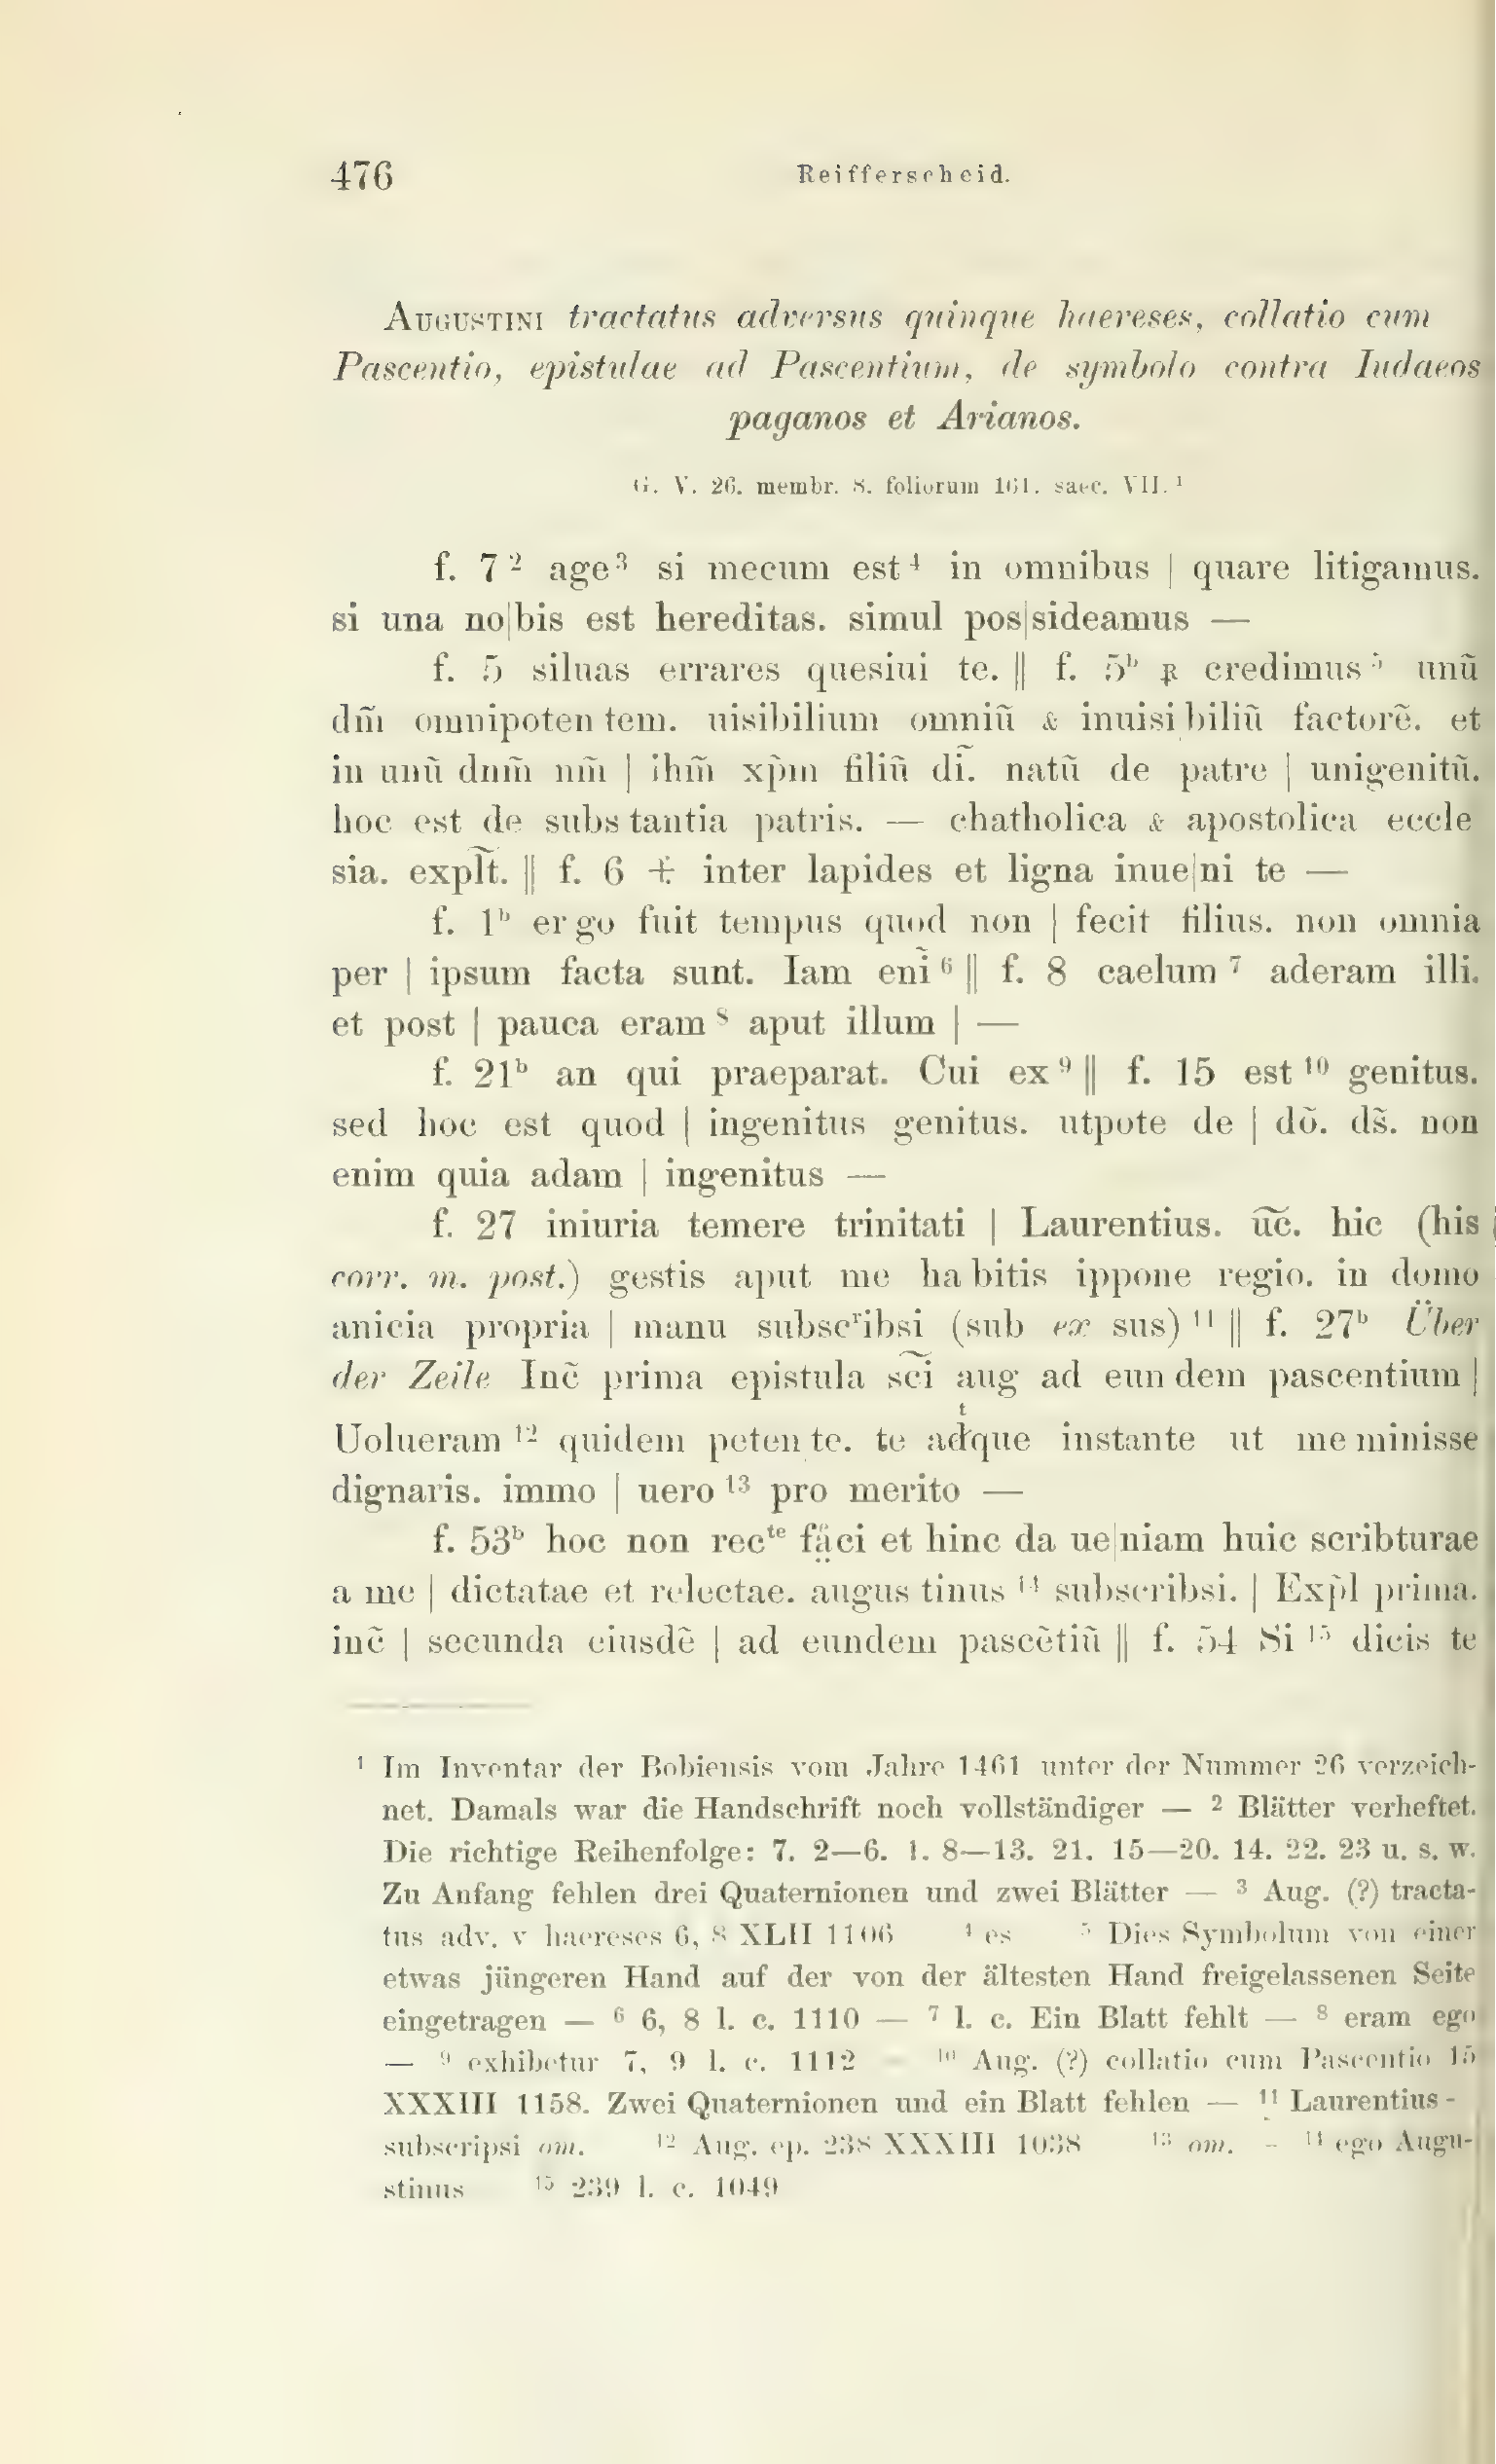 476
Reifferscheid.
AUGUSTINI tractatus adversus quinque haereses, collatio cum
Pascentio, epistulae ad Pascentium, de symbolo contra Iudaeos
paganos et Arianos.
G. V. 26. membr. 8. foliorum 161. saec. VII. ¹
f. 7 ² age ³ si mecum est ⁴ in omnibus | quare litigamus.
si una no|bis est hereditas. simul pos|sideamus —
f. 5 siluas errares quesiui te. || f. 5ᵇ ꝶ credimus ⁵ unũ
dm̃ omnipoten tem. uisibilium omniũ & inuisi biliũ factorẽ. et
in unũ dnm̃ nm̃ | ihm̃ xp̃m filiũ dĩ. natũ de patre | unigenitũ.
hoc est de subs tantia patris. — chatholica & apostolica eccle
sia. expl̃t. || f. 6 + inter lapides et ligna inue|ni te —
f. 1ᵇ er go fuit tempus quod non | fecit filius. non omnia
per | ipsum facta sunt. Iam enĩ ⁶ || f. 8 caelum ⁷ aderam illi.
et post | pauca eram ⁸ aput illum | —
f. 21ᵇ an qui praeparat. Cui ex ⁹ || f. 15 est ¹⁰ genitus.
sed hoc est quod | ingenitus genitus. utpote de | dõ. ds̃. non
enim quia adam | ingenitus —
f. 27 iniuria temere trinitati | Laurentius. ũc̃. hic (his
corr. m. post.) gestis aput me ha bitis ippone regio. in domo
anicia propria | manu subscʳibsi (sub ex sus) ¹¹ || f. 27ᵇ Über
der Zeile Inc̃ prima epistula sc̃i aug ad eun dem pascentium |
Uolueram ¹² quidem peten te. te adᵗque instante ut me minisse
dignaris. immo | uero ¹³ pro merito —
f. 53ᵇ hoc non recᵗᵉ fa̤ci et hinc da ue|niam huic scribturae
a me | dictatae et relectae. augus tinus ¹⁴ subscribsi. | Exp̃l prima.
inc̃ | secunda eiusdẽ | ad eundem pascẽtiũ || f. 54 Si ¹⁵ dicis te
¹ Im Inventar der Bobiensis vom Jahre 1461 unter der Nummer 26 verzeich-
net. Damals war die Handschrift noch vollständiger — ² Blätter verheftet.
Die richtige Reihenfolge: 7. 2—6. 1. 8—13. 21. 15—20. 14. 22. 23 u. s. w.
Zu Anfang fehlen drei Quaternionen und zwei Blätter — ³ Aug. (?) tracta-
tus adv. v haereses 6, 8 XLII 1106 ⁴ es ⁵ Dies Symbolum von einer
etwas jüngeren Hand auf der von der ältesten Hand freigelassenen Seite
eingetragen — ⁶ 6, 8 l. c. 1110 — ⁷ l. c. Ein Blatt fehlt — ⁸ eram ego
— ⁹ exhibetur 7, 9 l. c. 1112 — ¹⁰ Aug. (?) collatio cum Pascentio 15
XXXIII 1158. Zwei Quaternionen und ein Blatt fehlen — ¹¹ Laurentius -
subscripsi om. ¹² Aug. ep. 238 XXXIII 1038 ¹³ om. - ¹⁴ ego Augu-
stinus ¹⁵ 239 l. c. 1049